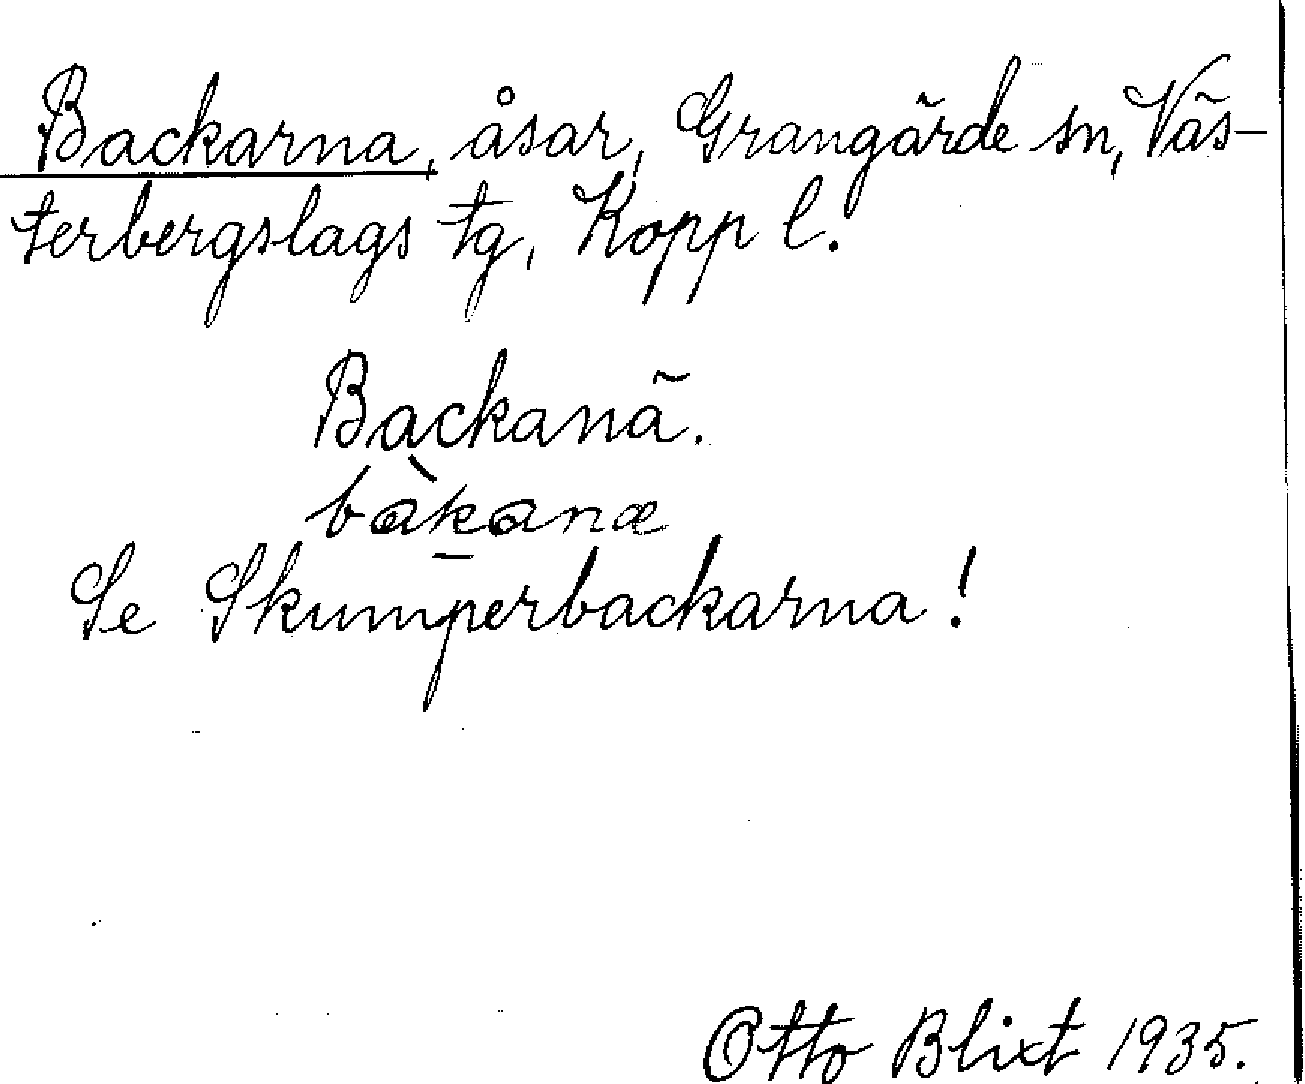 Backarna, åsar, Grangärde sn, Väs-
terbergslags tg, Kopp l.
Backanä.
bàkanæ
Se Skumperbackarna!
Otto Blixt 1935.